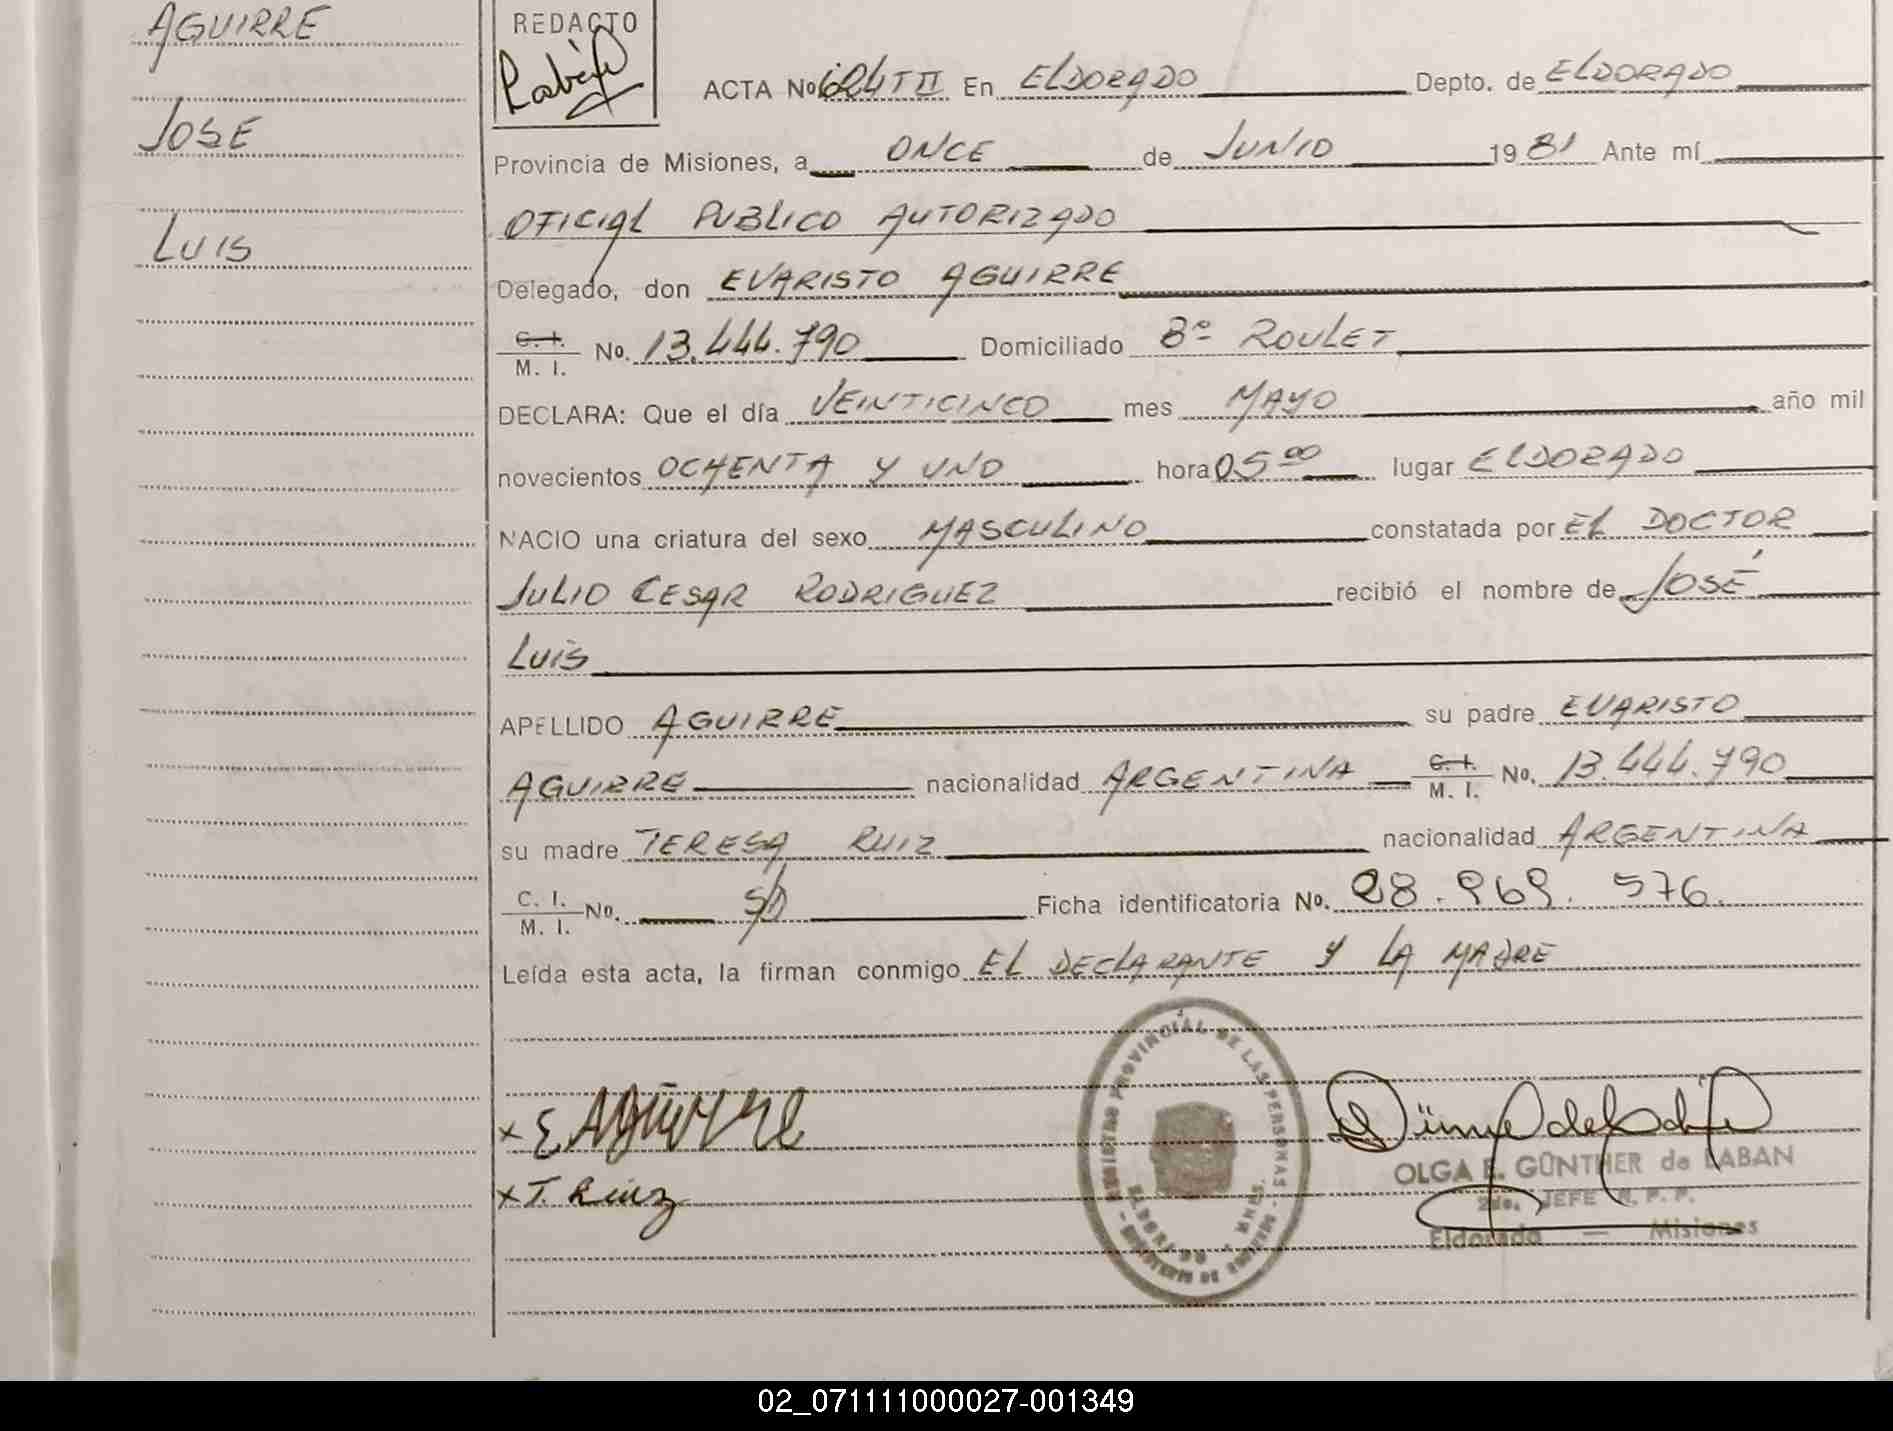 AGUIRRE
JOSE
LUIS
REDACTO
ACTA No 624 T II En ELDORADO Depto. de ELDORADO
Provincia de Misiones, a ONCE de JUNIO 1981 Ante mí
OFICIAL PUBLICO AUTORIZADO
Delegado, don EVARISTO AGUIRRE
C. I.
M. I. No. 13.444.790 Domiciliado Bº ROULET
DECLARA: Que el día VEINTICINCO mes MAYO año mil
novecientos OCHENTA Y UNO hora 05 00 lugar ELDORADO
NACIO una criatura del sexo MASCULINO constatada por EL DOCTOR
JULIO CESAR RODRIGUEZ recibió el nombre de JOSÉ
LUIS
APELLIDO AGUIRRE su padre EVARISTO
AGUIRRE nacionalidad ARGENTINA C. I. M. I. No. 13.444.790
su madre TERESA RUIZ nacionalidad ARGENTINA
C. I.
M. I. No. S/D Ficha identificatoria No. 28.969.576.
Leída esta acta, la firman conmigo EL DECLARANTE Y LA MADRE
REGISTRO PROVINCIAL DE LAS PERSONAS
x E. Aguirre
x T. Ruiz
OLGA E. GÜNTHER de LABAN
2do. JEFE R. P. P.
Eldorado — Misiones
02_071111000027-001349